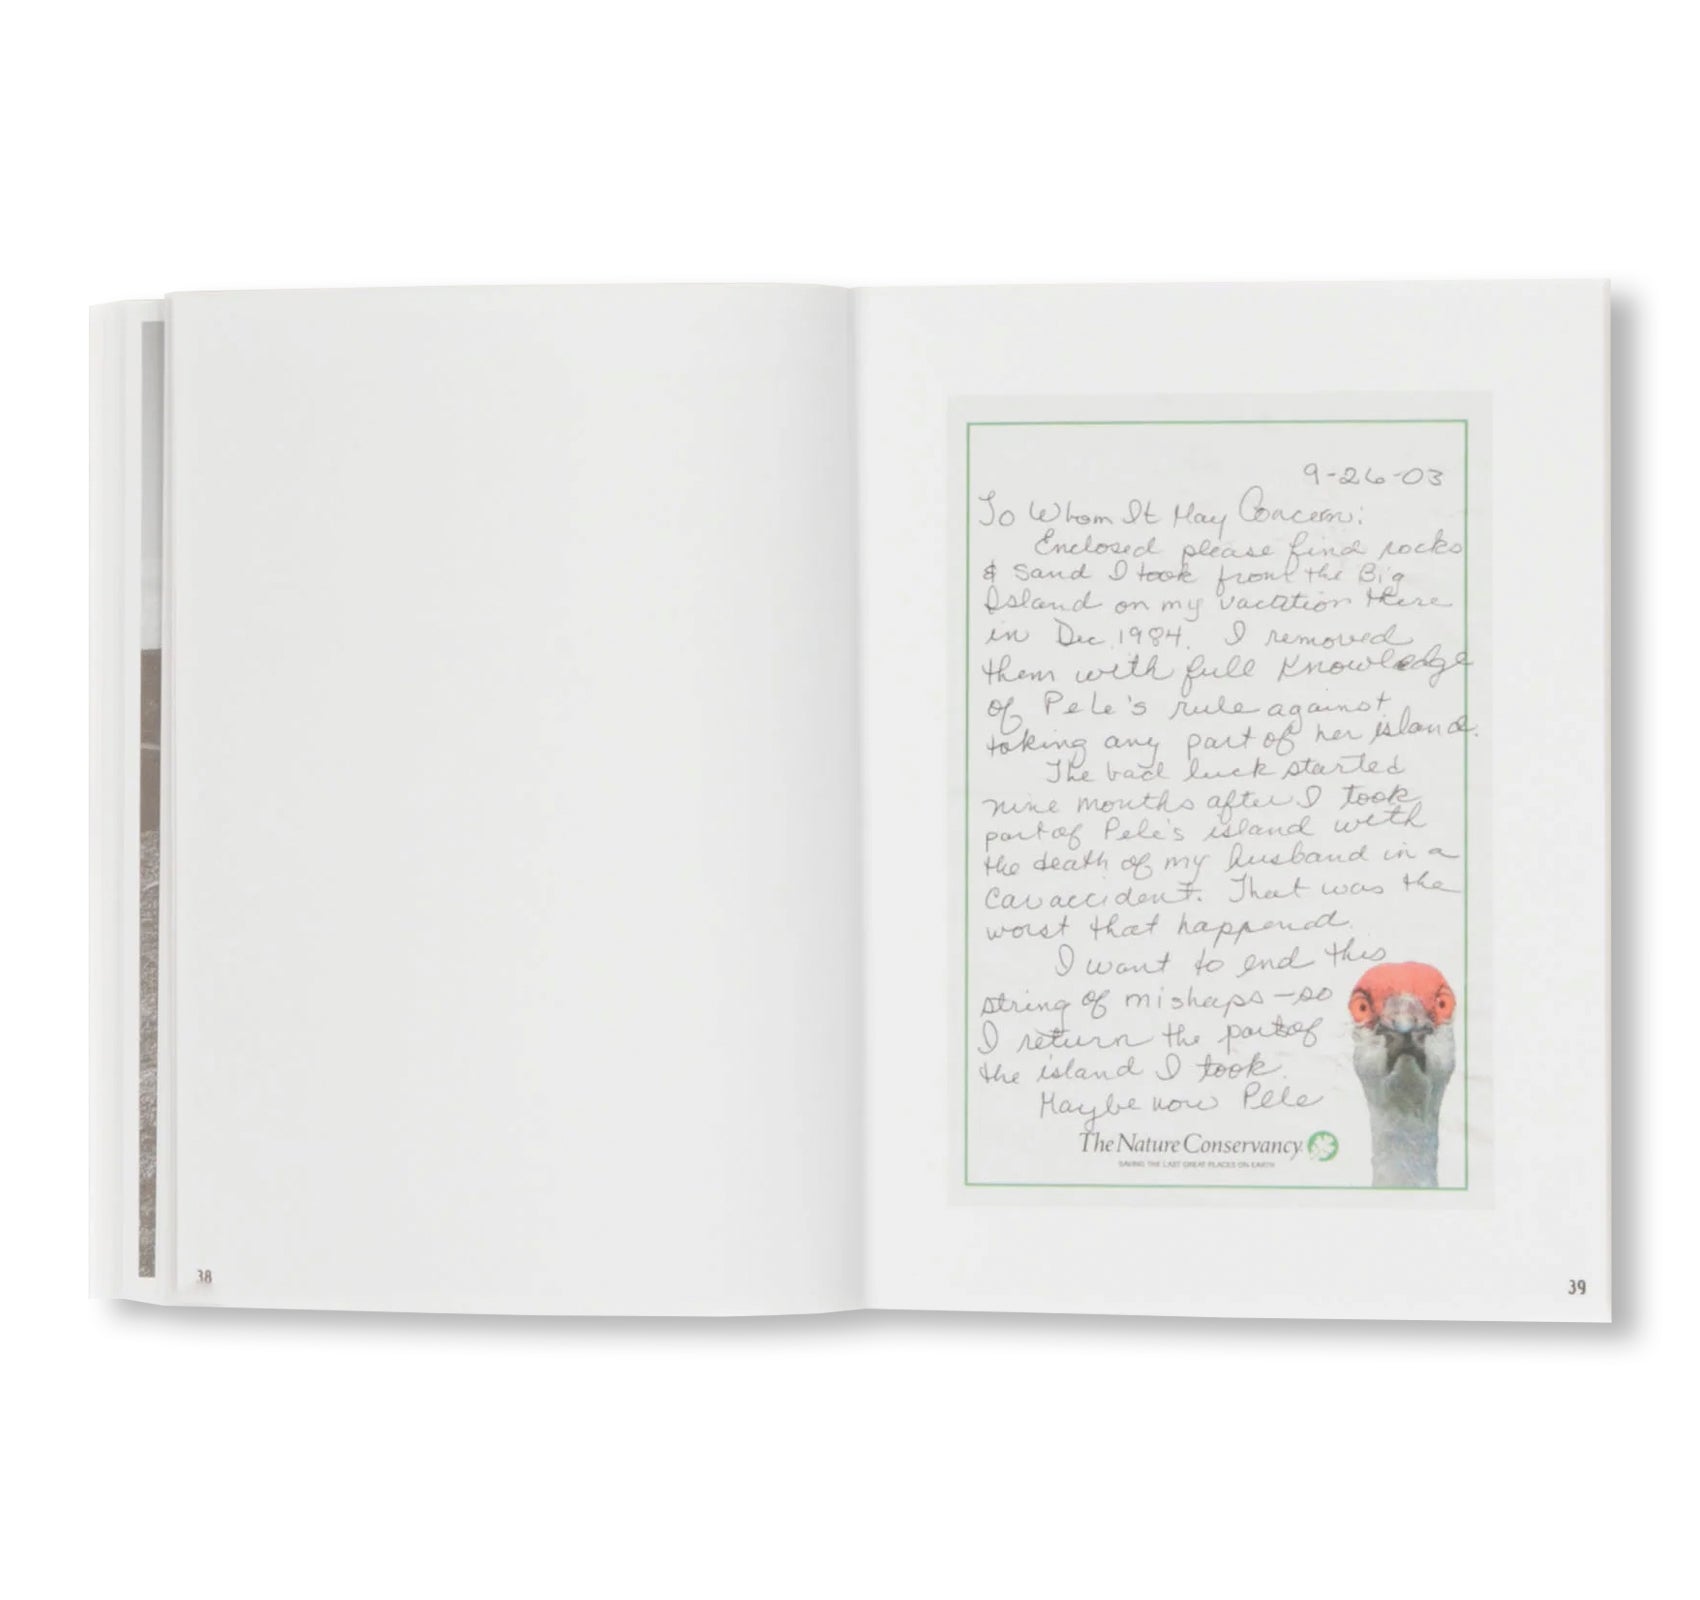 9-26-03
To Whom It May Concern:
Enclosed please find rocks
& sand I took from the Big
Island on my vacation there
in Dec. 1984. I removed
them with full knowledge
of Pele's rule against
taking any part of her island.
The bad luck started
nine months after I took
part of Pele's island with
the death of my husband in a
car accident. That was the
worst that happened.
I want to end this
string of mishaps - so
I return the part of
the island I took.
Maybe now Pele
The Nature Conservancy
SAVING THE LAST GREAT PLACES ON EARTH
38
39